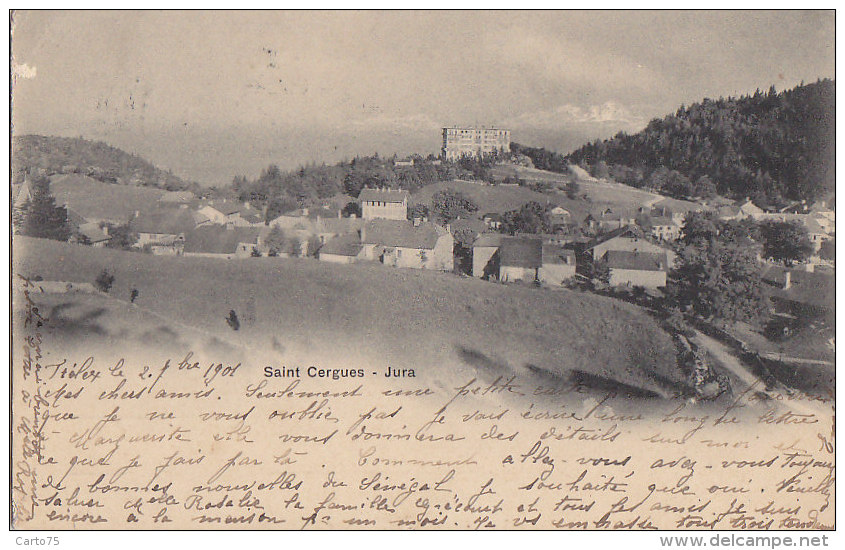 Saint Cergues - Jura
Trélex le 2 7bre 1901
Mes chers amis. Seulement une petite carte
que je ne vous oublie pas Je vais écrire une longue lettre
à Marguerite elle vous donnera des détails sur moi et
ce que je fais par là Comment allez-vous, avez-vous toujours
de bonnes nouvelles du Sénégal je souhaite que oui. Veuillez
saluer de Rosalie la famille et tous les amis. Je suis
encore à la maison pr un mois. Je vs embrasse tous trois
Carto75
www.delcampe.net